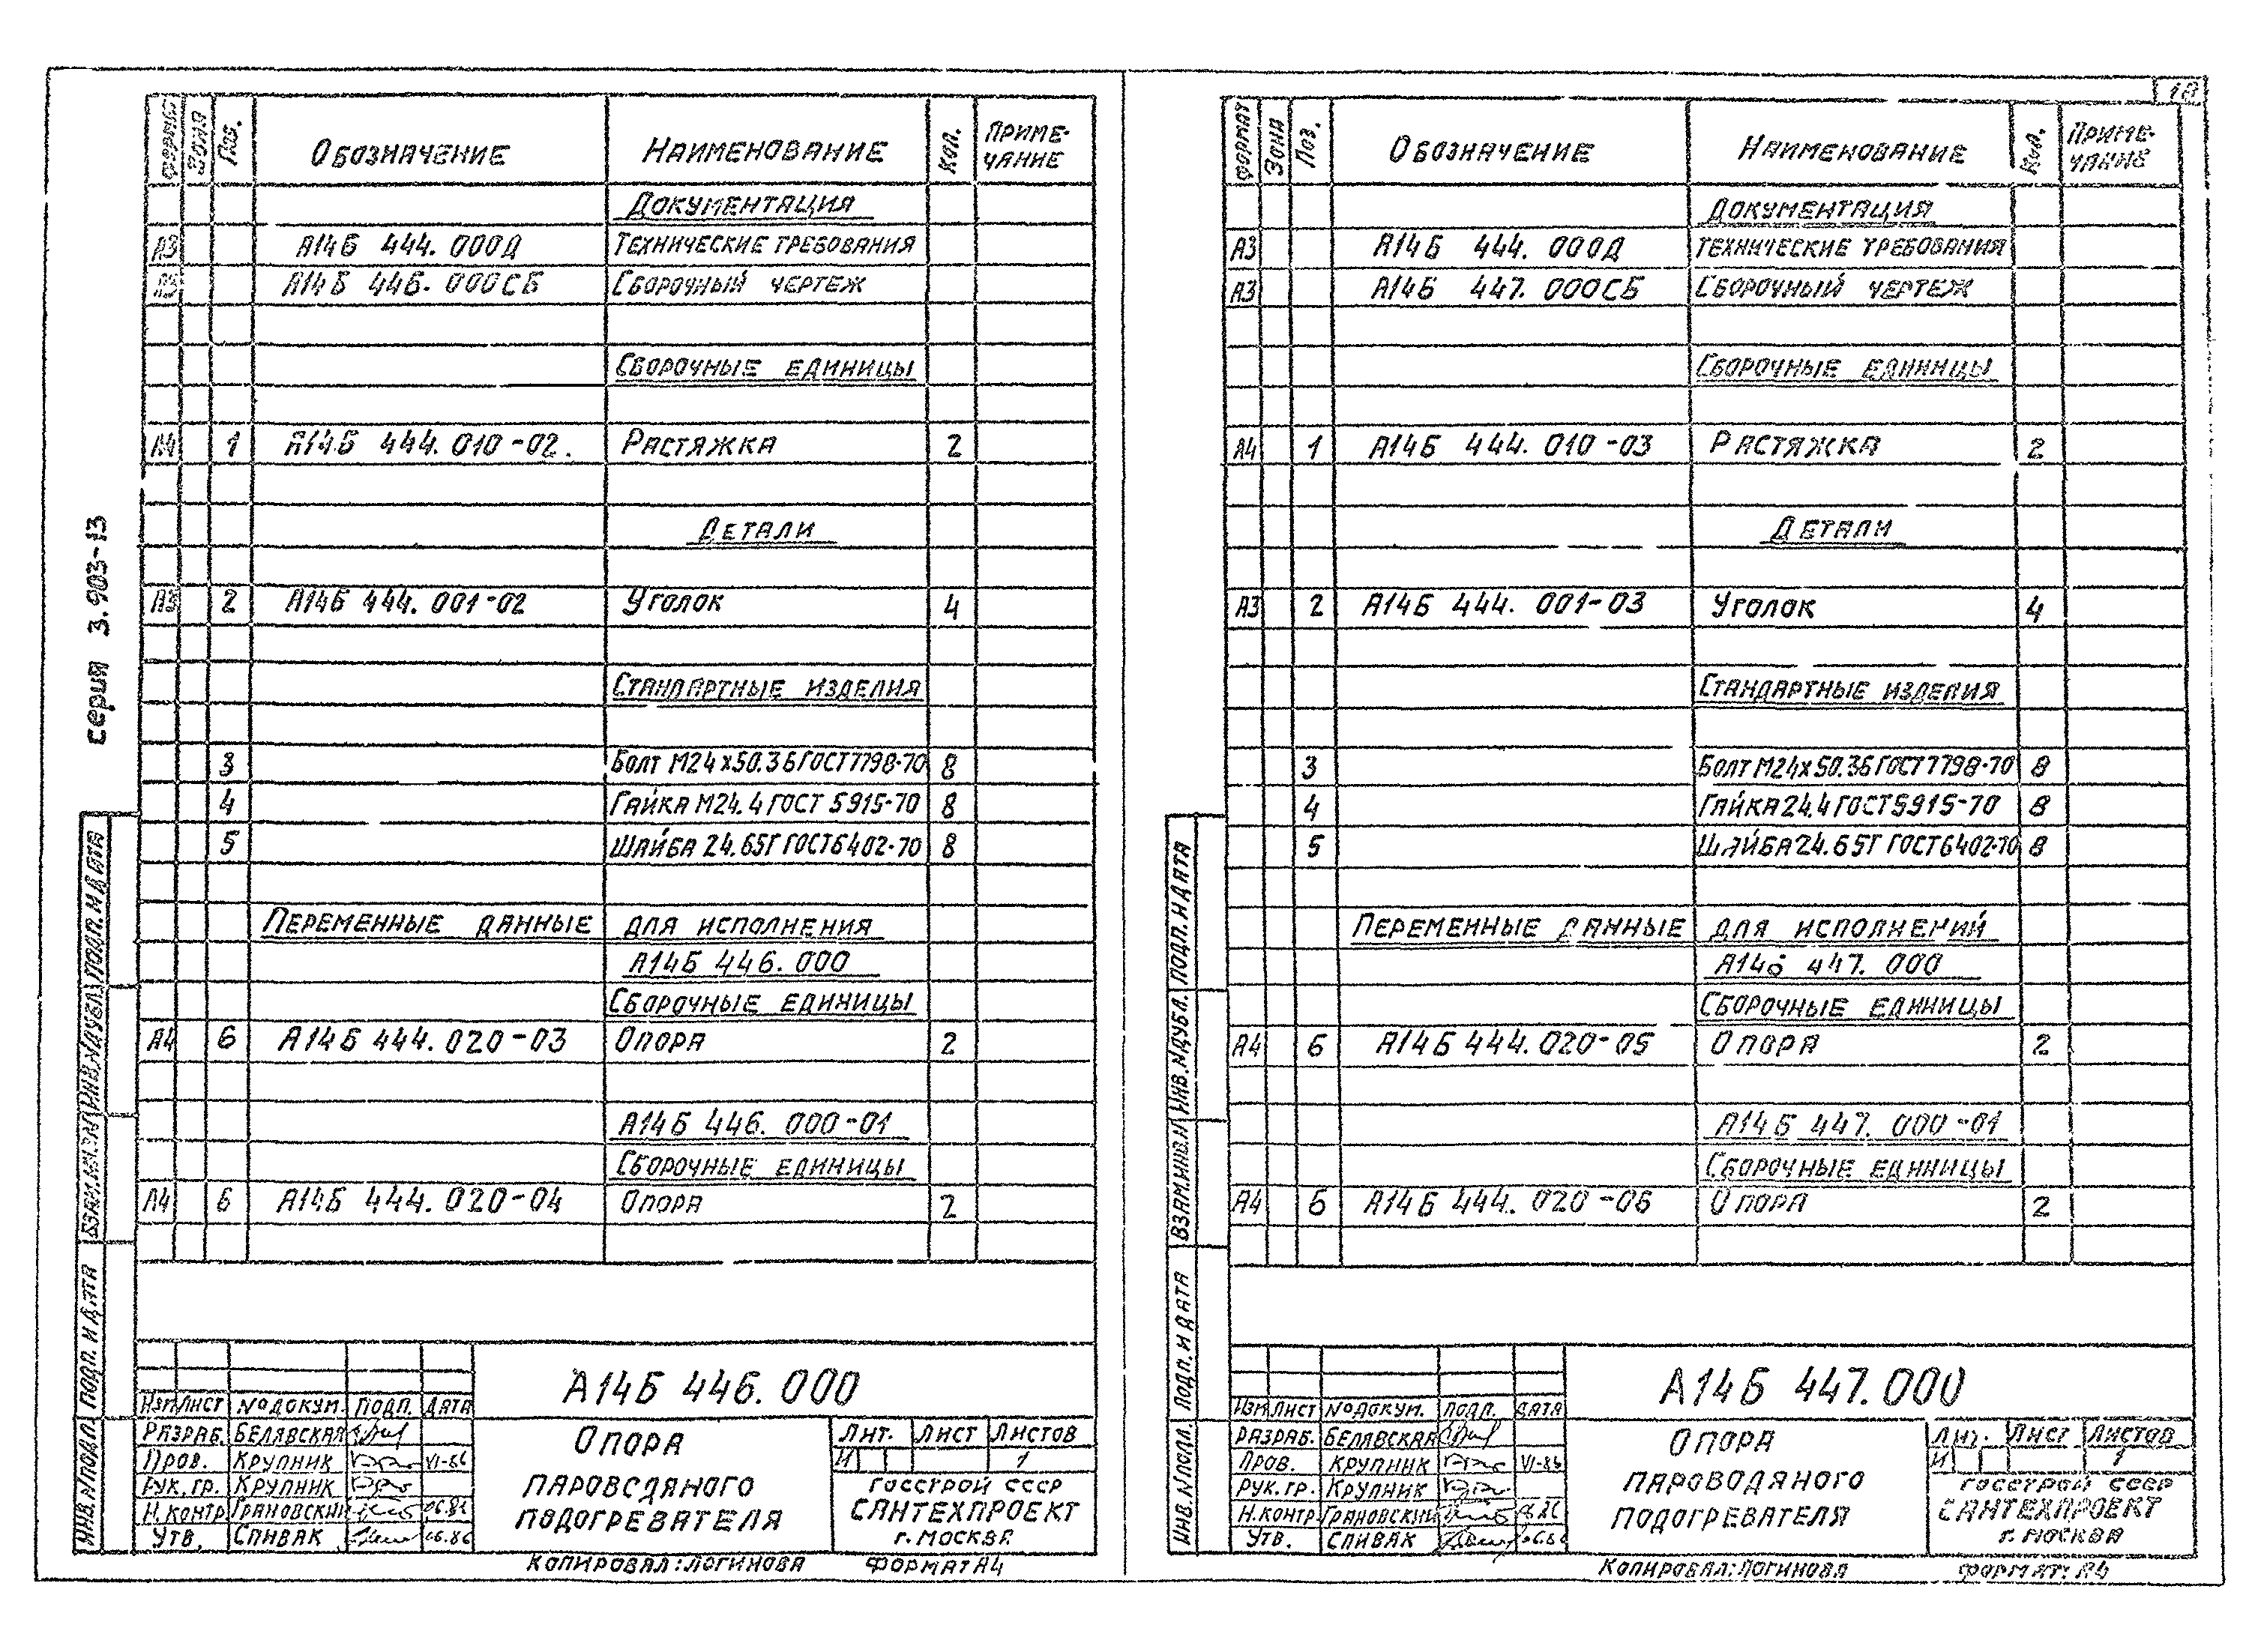 18
серия 3.903-13
Формат Зона Поз. Обозначение Наименование Кол. Приме-чание
Документация
А3 А14Б 444.000Д Технические требования
А3 А14Б 446.000СБ Сборочный чертеж
Сборочные единицы
А4 1 А14Б 444.010-02. Растяжка 2
Детали
А3 2 А14Б 444.001-02 Уголок 4
Стандартные изделия
3 Болт М24х50.36 ГОСТ 7798-70 8
4 Гайка М24.4 ГОСТ 5915-70 8
5 Шайба 24.65Г ГОСТ 6402-70 8
Переменные данные для исполнения
А14Б 446.000
Сборочные единицы
А4 6 А14Б 444.020-03 Опора 2
А14Б 446.000-01
Сборочные единицы
А4 6 А14Б 444.020-04 Опора 2
Инв.№подл. Подп. и дата Взам.инв.№ Инв.№дубл. Подп. и дата
А14Б 446.000
Изм Лист №докум. Подп. Дата
Разраб. Белявская
Пров. Крупник VI-86
Рук.гр. Крупник
Н.контр Грановский 06.86
Утв. Спивак 06.86
Опора
пароводяного
подогревателя
Лит. Лист Листов
И 1
Госстрой СССР
САНТЕХПРОЕКТ
г.Москва
Копировал: Логинова Формат А4
Формат Зона Поз. Обозначение Наименование Кол. Приме-чание
Документация
А3 А14Б 444.000Д Технические требования
А3 А14Б 447.000СБ Сборочный чертеж
Сборочные единицы
А4 1 А14Б 444.010-03 Растяжка 2
Детали
А3 2 А14Б 444.001-03 Уголок 4
Стандартные изделия
3 Болт М24х50.36 ГОСТ 7798-70 8
4 Гайка 24.4 ГОСТ 5915-70 8
5 Шайба 24.65Г ГОСТ 6402-70 8
Переменные данные для исполнений
А14Б 447.000
Сборочные единицы
А4 6 А14Б 444.020-05 Опора 2
А14Б 447.000-01
Сборочные единицы
А4 6 А14Б 444.020-06 Опора 2
Инв.№подл. Подп. и дата Взам.инв.№ Инв.№дубл. Подп. и дата
А14Б 447.000
Изм Лист №докум. Подп. Дата
Разраб. Белявская
Пров. Крупник VI-86
Рук.гр. Крупник
Н.контр Грановский
Утв. Спивак 06.86
Опора
пароводяного
подогревателя
Лит. Лист Листов
И 1
Госстрой СССР
САНТЕХПРОЕКТ
г.Москва
Копировал: Логинова Формат: А4